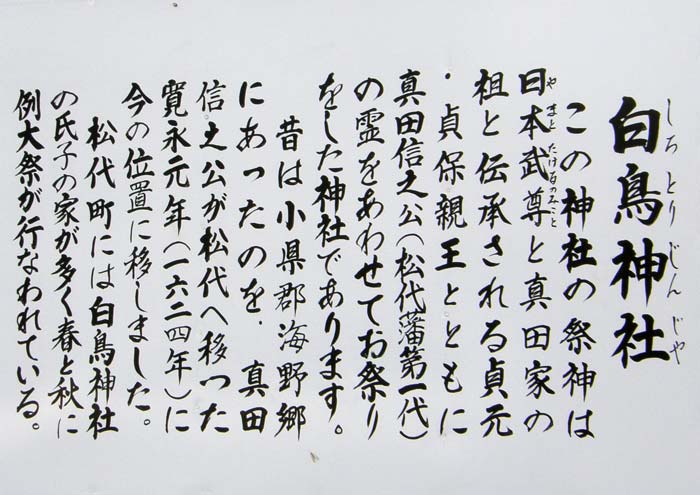 白鳥神社
しらとりじんじゃ
この神社の祭神は
日本武尊と真田家の
やまとたけるのみこと
祖と伝承される貞元
・貞保親王とともに
真田信之公(松代藩第一代)
の霊をあわせてお祭り
をした神社であります。
昔は小県郡海野郷
にあったのを.真田
信之公が松代へ移った
寛永元年(一六二四年)に
今の位置に移しました。
松代町には白鳥神社
の氏子の家が多く春と秋に
例大祭が行なわれている。